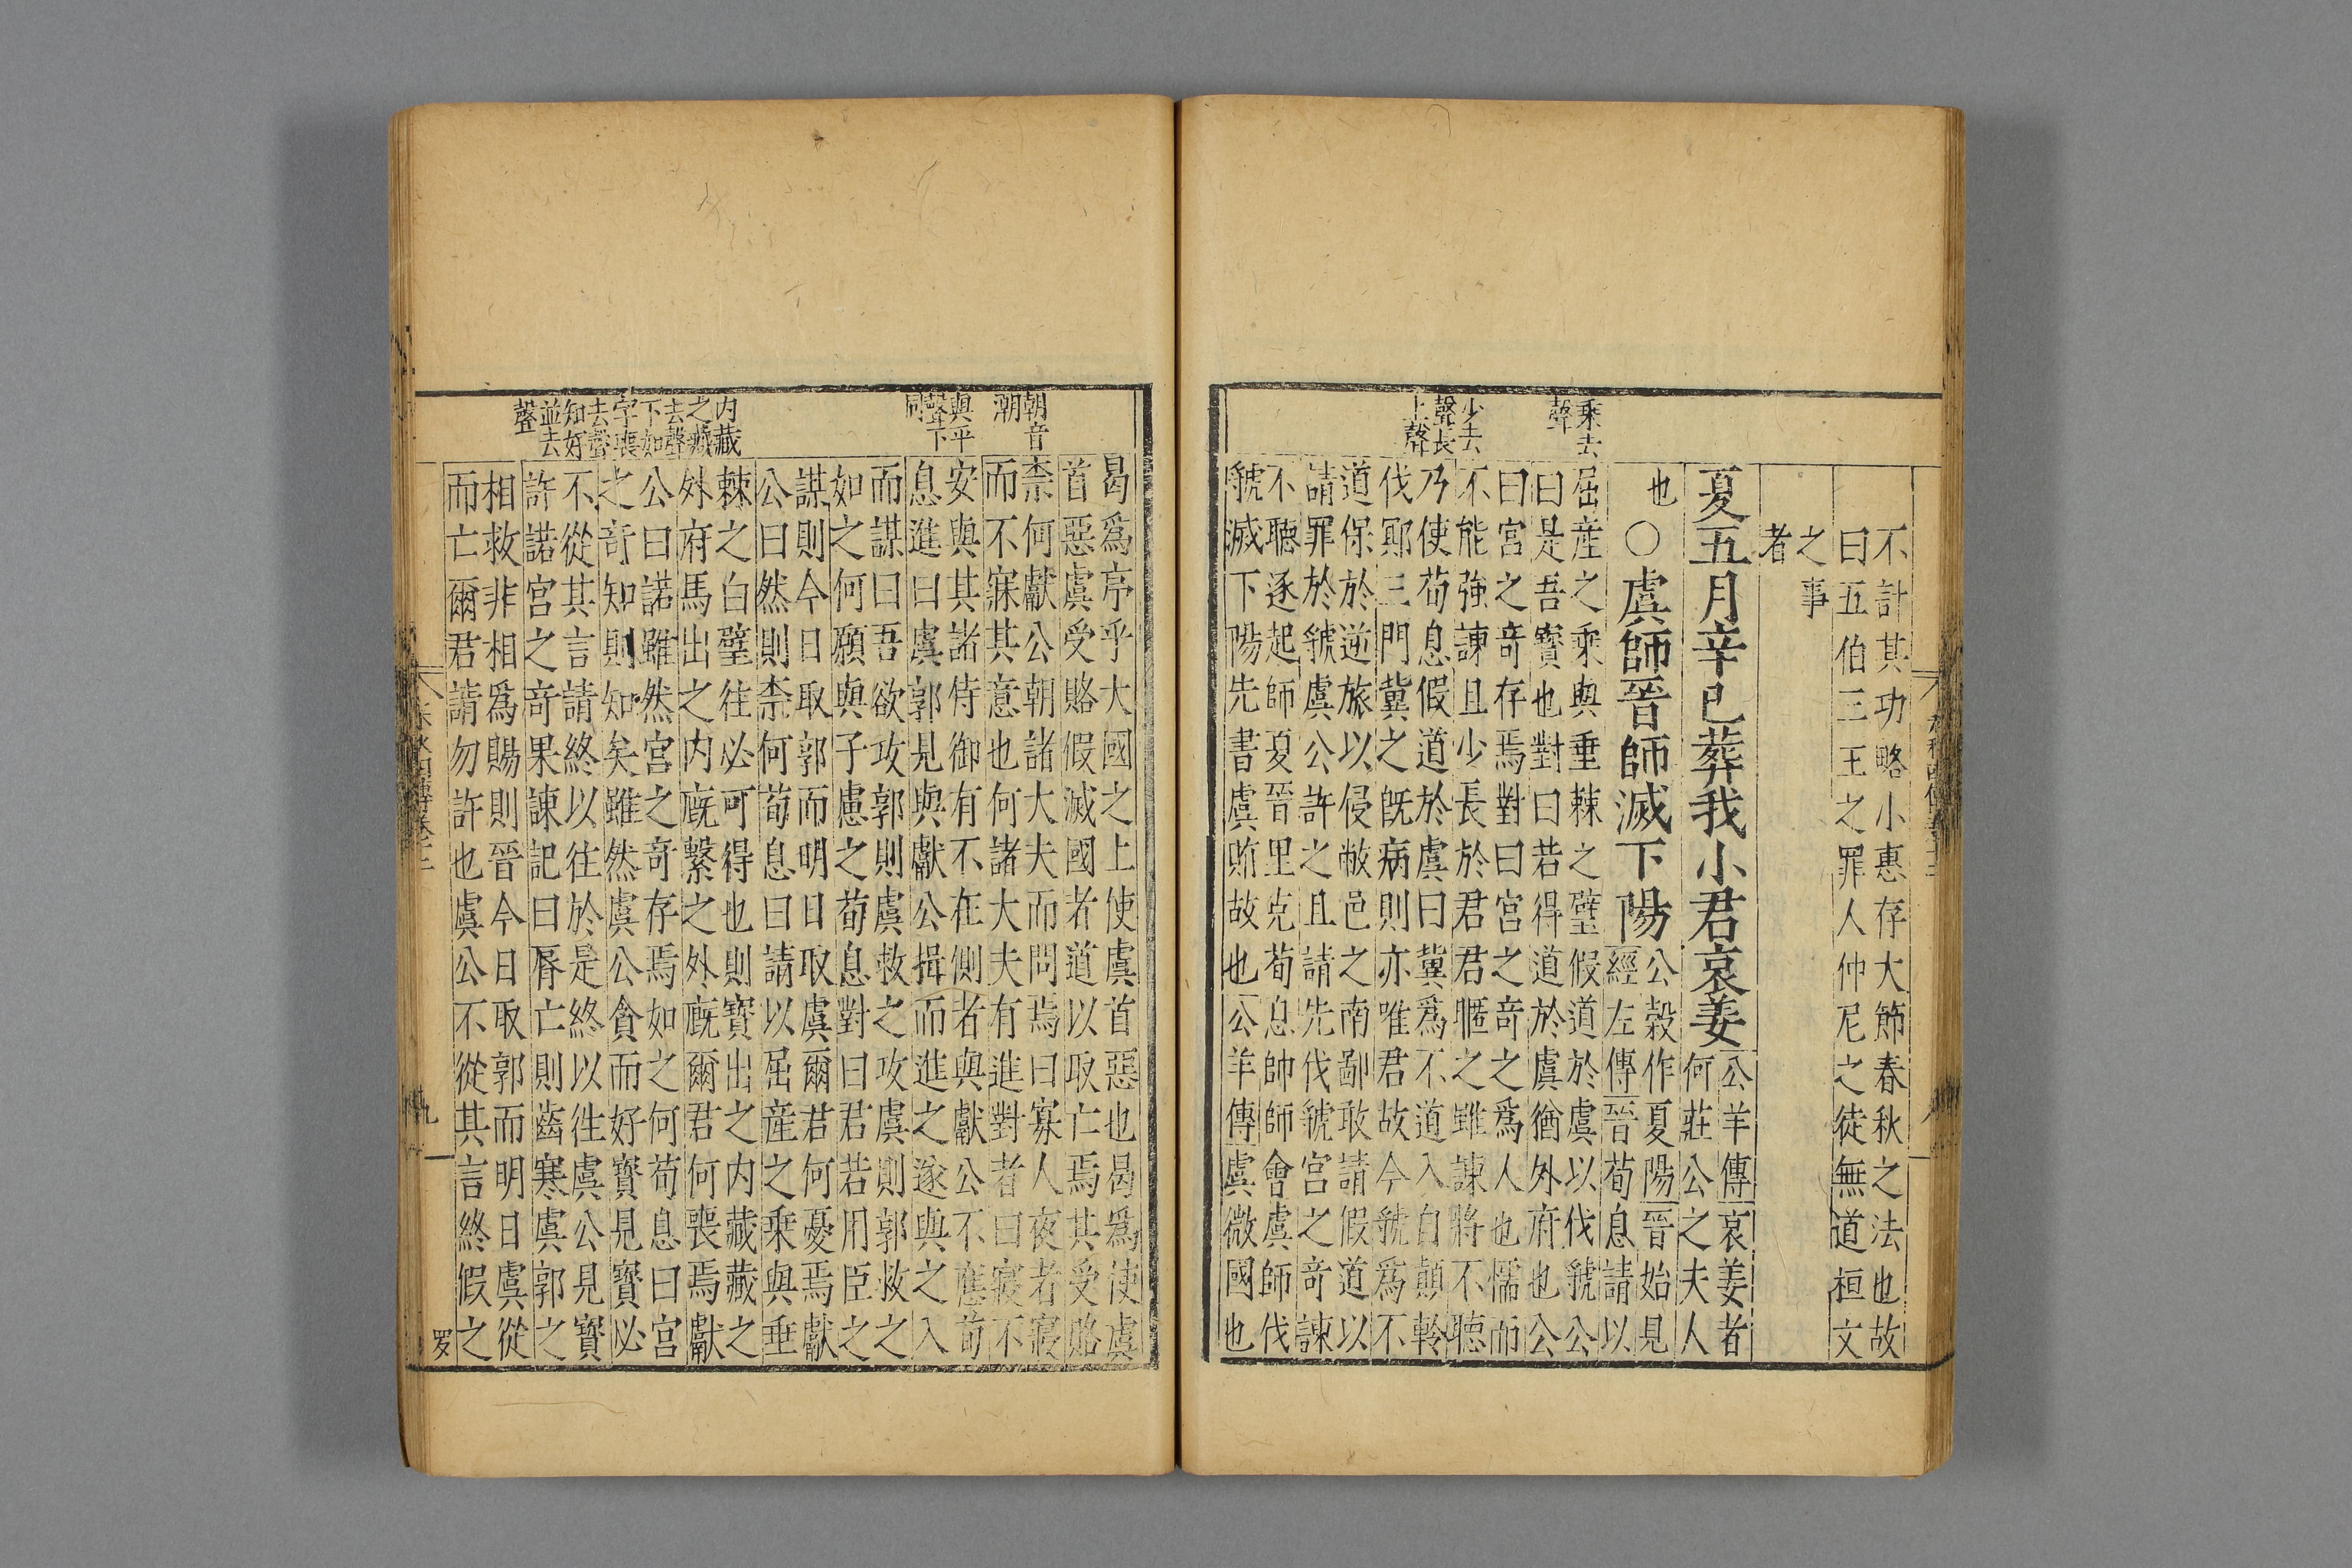 不計其功略小惠存大節春秋之法也故
曰五伯三王之罪人仲尼之徒無道桓文
之事
者
夏五月辛巳葬我小君哀姜
公羊傳哀姜者
何莊公之夫人
也
○虞師晉師滅下陽
公穀作夏陽晉始見
經左傳晉荀息請以
屈產之乘與垂棘之璧假道於虞以伐虢公
曰是吾寶也對曰若得道於虞猶外府也公
曰宮之奇存焉對曰宮之奇之爲人也懦而
不能強諫且少長於君君暱之雖諫將不聽
乃使荀息假道於虞曰冀爲不道入自顛軨
伐鄍三門冀之旣病則亦唯君故今虢爲不
道保於逆旅以侵敝邑之南鄙敢請假道以
請罪於虢虞公許之且請先伐虢宮之奇諫
不聽遂起師夏晉里克荀息帥師會虞師伐
虢滅下陽先書虞賄故也公羊傳虞微國也
乘去
聲
少去
聲長
上聲
曷爲序乎大國之上使虞首惡也曷爲使虞
首惡虞受賂假滅國者道以取亡焉其受賂
柰何獻公朝諸大夫而問焉曰寡人夜者寢
而不寐其意也何諸大夫有進對者曰寢不
安與其諸侍御有不在側者與獻公不應荀
息進曰虞郭見與獻公揖而進之遂與之入
而謀曰吾欲攻郭則虞救之攻虞則郭救之
如之何願與子慮之荀息對曰君若用臣之
謀則今日取郭而明日取虞爾君何憂焉獻
公曰然則柰何荀息曰請以屈產之乘與垂
棘之白璧往必可得也則寶出之内藏藏之
外府馬出之内廐繫之外廐爾君何喪焉獻
公曰諾雖然宮之奇存焉如之何荀息曰宮
之奇知則知矣雖然虞公貪而好寶見寶必
不從其言請終以往於是終以往虞公見寶
許諾宮之奇果諫記曰脣亡則齒寒虞郭之
相救非相爲賜則晉今日取郭而明日虞從
而亡爾君請勿許也虞公不從其言終假之
朝音
潮
與平
聲下
同
内藏
之藏
去聲
下如
字喪
去聲
知好
並去
聲
九